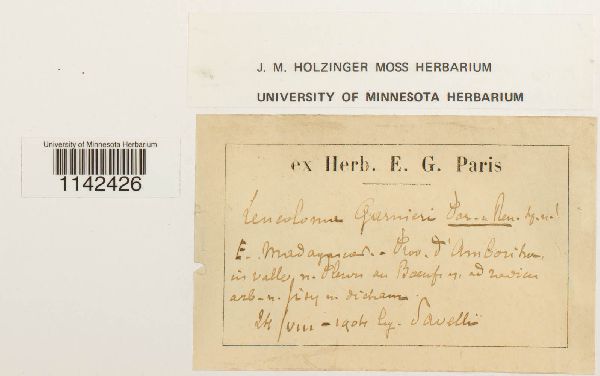 J. M. HOLZINGER MOSS HERBARIUM
UNIVERSITY OF MINNESOTA HERBARIUM
University of Minnesota Herbarium
1142426
ex Herb. E. G. Paris
Leucoloma Garnieri Par. et Ren.
E. Madagascar. - Prov. d'Ambositra,
in valle, Fleuve au Bœufs, ad radices
arb.
24/VIII - 1904 lg. Savelli